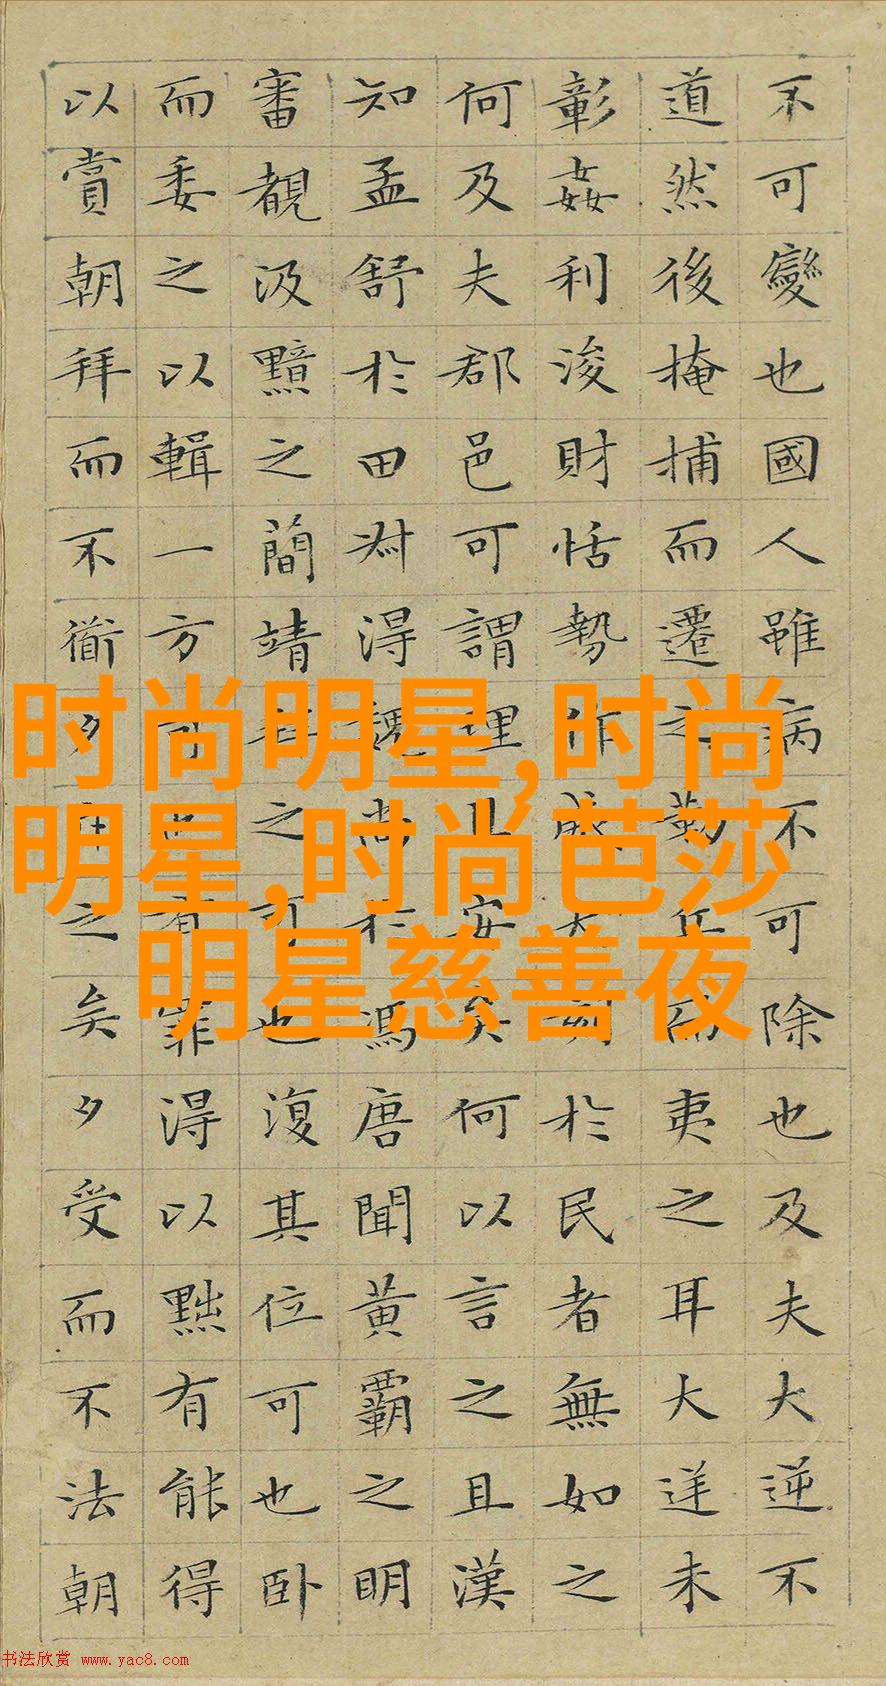 不可變也國人雖病不可除也及夫大逆不
道然後掩捕而遷之勒兵而夷之耳大逆未
彰姦利浚財怙勢作威大刻於民者無如之
何及夫郡邑可謂理且安矣何以言之且漢
知孟舒於田尗得魏尚於馮唐聞黃霸之明
審覩汲黯之簡靖拜之可也復其位可也卧
而委之以輯一方可也有罪得以黜有能得
以賞朝拜而不衜夕斥之矣夕受而不法朝
时尚明星,时尚
明星,时尚芭莎
明星慈善夜
书法欣赏 www.yac8.com